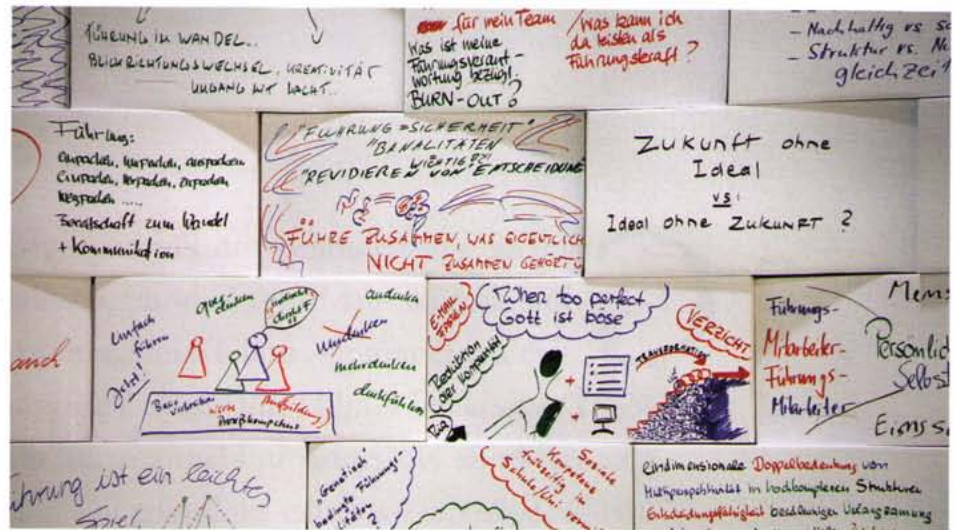 FÜHRUNG IM WANDEL..
BLICKRICHTUNGSWECHSEL, KREATIVITÄT
UMGANG MIT MACHT..
für mein Team
Was ist meine
Führungsverant-
wortung bezügl.
BURN-OUT?
was kann ich
da leisten als
Führungskraft?
- Nachhaltig vs
- Struktur vs.
gleichzeit
Führung:
einpacken, auspacken
Einpacken, zupacken
wegpacken .....
Bereitschaft zum Wandel
+ Kommunikation
"FÜHRUNG = SICHERHEIT"
"BANALITÄTEN
WICHTIG
"REVIDIEREN VON ENTSCHEIDUNG
FÜHRE ZUSAMMEN, WAS EIGENTLICH
NICHT ZUSAMMEN GEHÖRT
Zukunft ohne
Ideal
vs.
Ideal ohne Zukunft?
auch
einfach
führen
Jetzt!
querdenken
andenken
Umdenken
mehrdenken
durchführen
Werte
Ausbildung
E-MAIL
When too perfect
Gott ist böse
VERZICHT
Reduktion
der Komplexität
TRANSFORMATION
Big
Führungs-
Mitarbeiter-
Führungs-
Mitarbeiter
Persönlic
Selbst
Führung ist ein leichtes
Spiel
"Genetisch"
bedingte Führungs-
Soziale
Kompetenz
frühzeitig in
Schule/Uni
eindimensionale Doppelbedeutung von
Multiperspektivität in hochkomplexen Strukturen
Entscheidungsfähigkeit